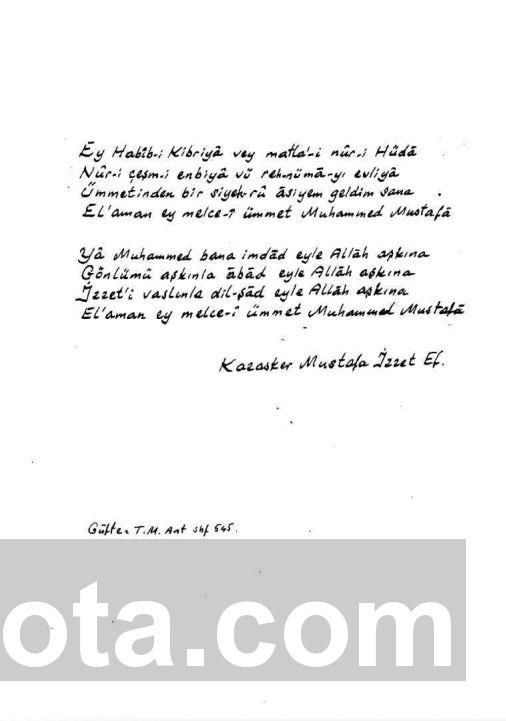 Ey Habîb-i Kibriyâ vey matla'-i nûr-i Hüdâ
Nûr-i çeşm-i enbiyâ vü reh-nümâ-yı evliyâ
Ümmetinden bir siyeh-rû âsiyem geldim sana
El'aman ey melce-î ümmet Muhammed Mustafâ
Yâ Muhammed bana imdâd eyle Allâh aşkına
Gönlümü aşkınla âbâd eyle Allâh aşkına
İzzet'i vaslınla dil-şâd eyle Allâh aşkına
El'aman ey melce-î ümmet Muhammed Mustafâ
Kazasker Mustafa İzzet Ef.
Güfte: T.M. Ant shf 545.
ota.com